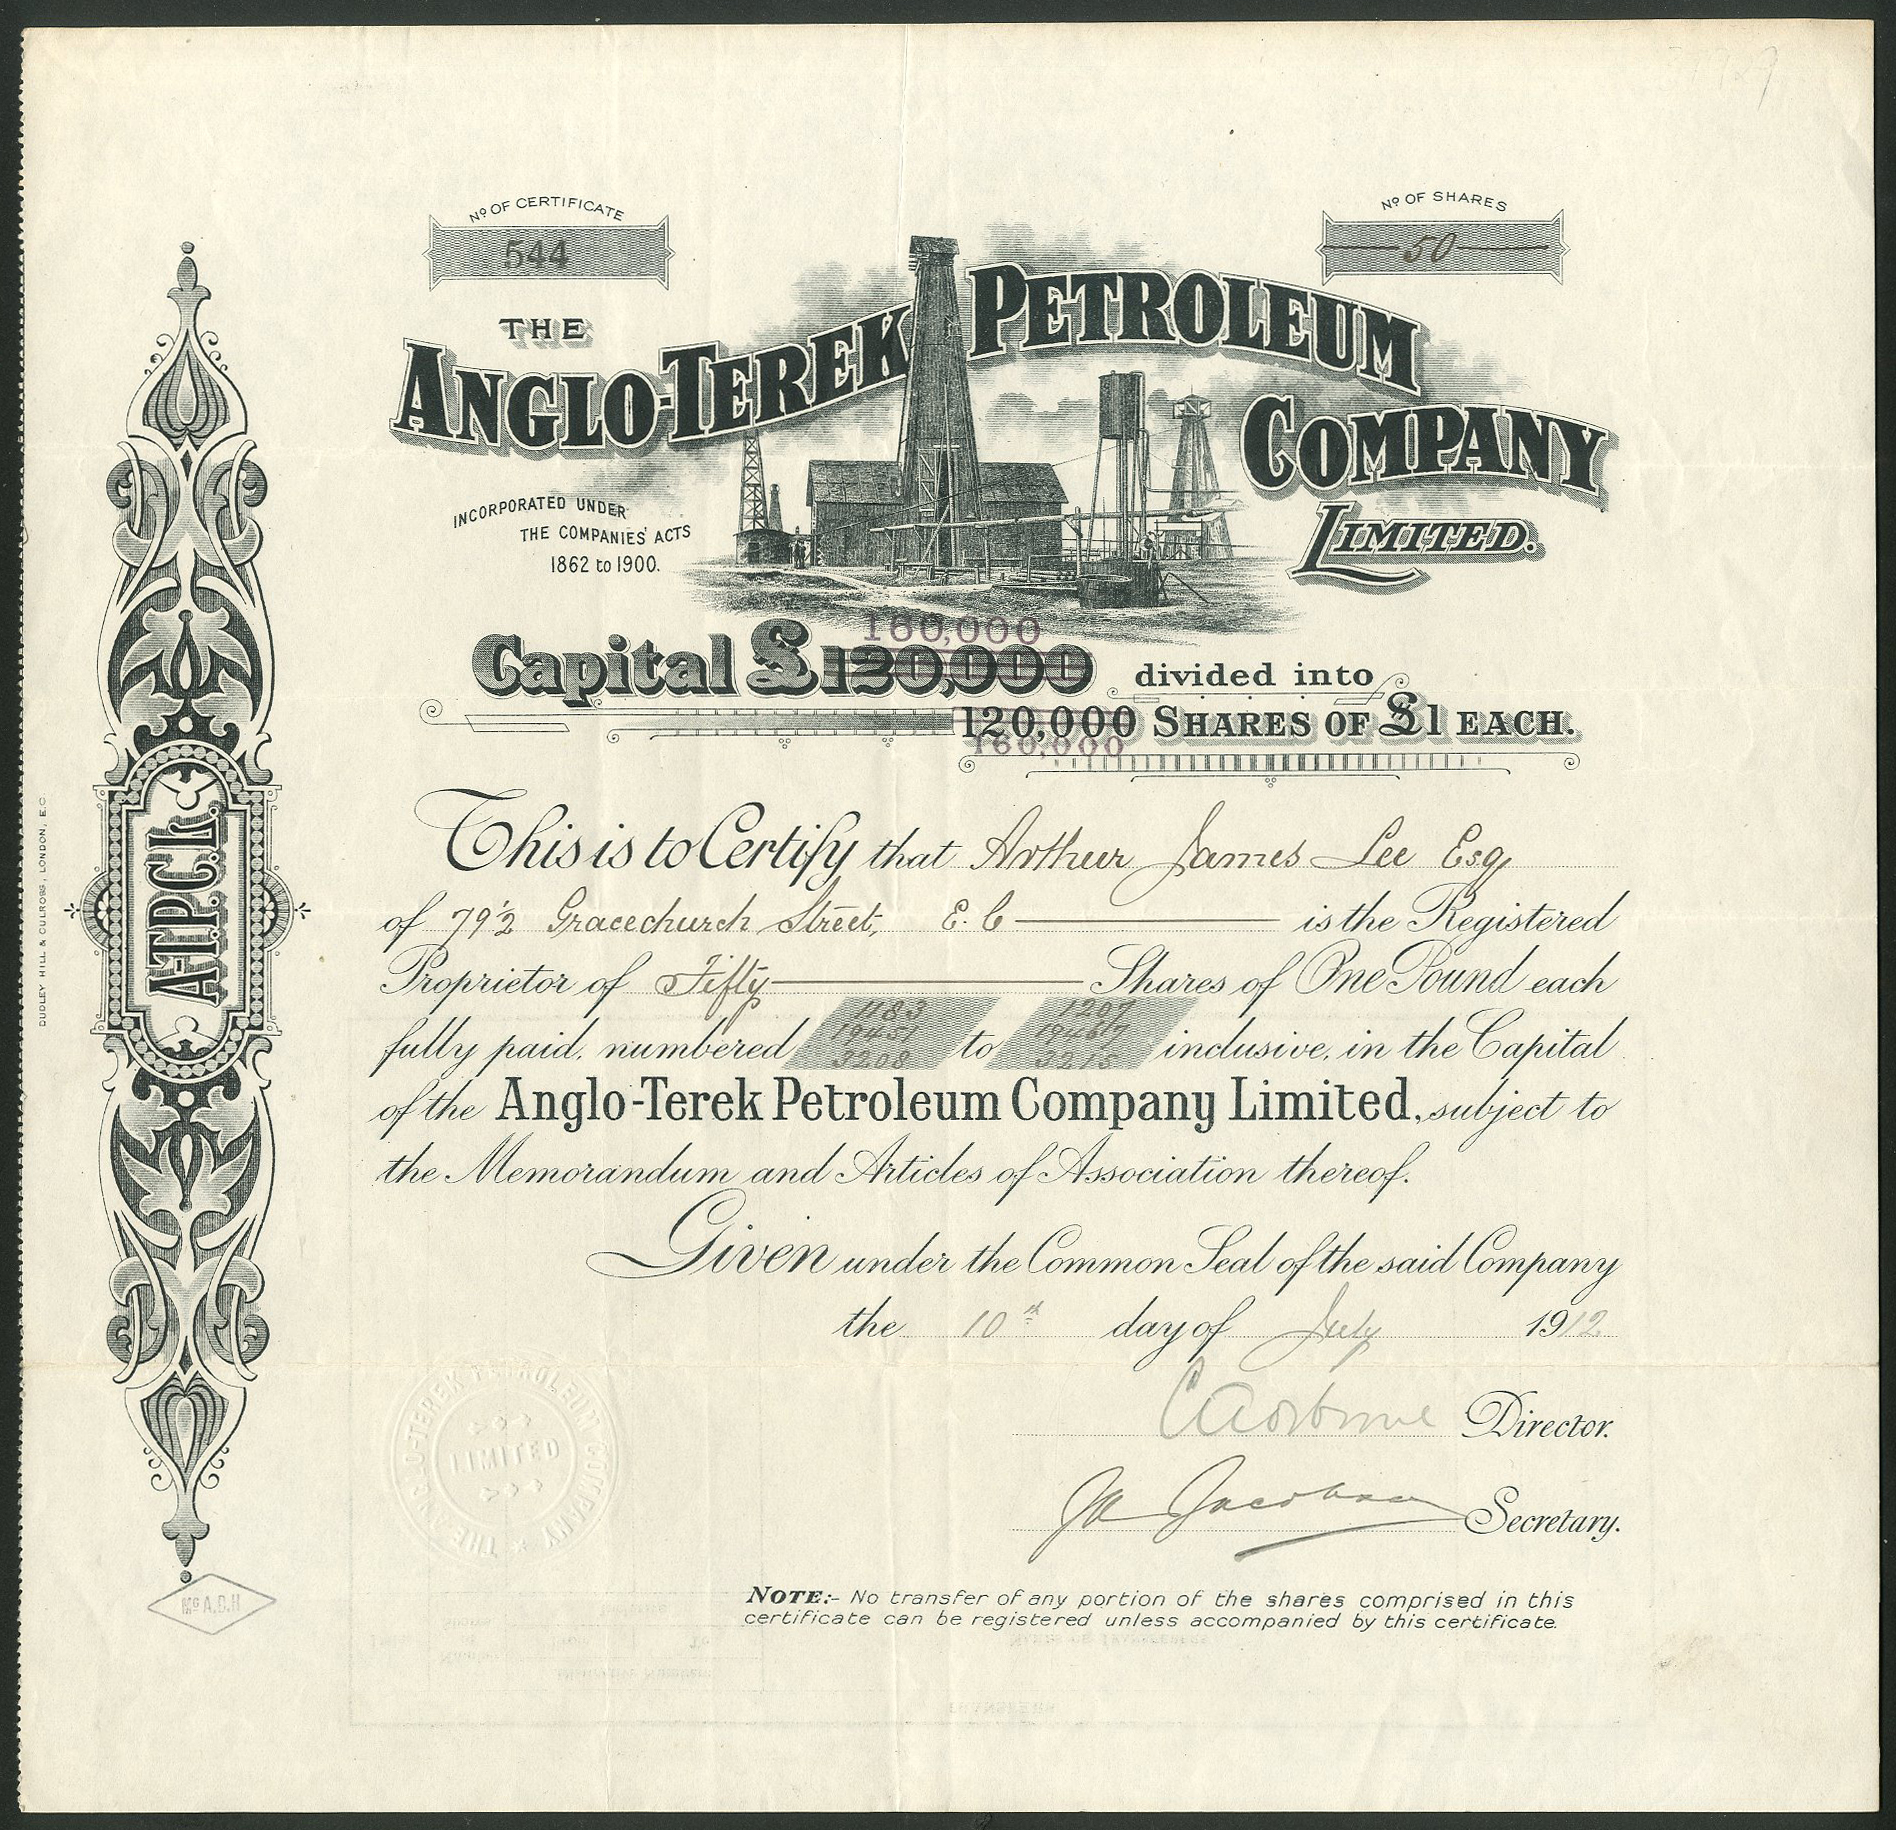 Nº OF CERTIFICATE
544
Nº OF SHARES
50
THE
ANGLO-TEREK PETROLEUM COMPANY
LIMITED.
INCORPORATED UNDER
THE COMPANIES' ACTS
1862 to 1900.
160,000
Capital £120,000 divided into
120,000 SHARES OF £1 EACH.
160,000
This is to Certify that Arthur James Lee Esq
of 79½ Gracechurch Street, E.C is the Registered
Proprietor of Fifty Shares of One Pound each
1183 1207
19451 19467
fully paid, numbered 3208 to 3215 inclusive, in the Capital
of the Anglo-Terek Petroleum Company Limited, subject to
the Memorandum and Articles of Association thereof.
Given under the Common Seal of the said Company
the 10th day of July 1912
Director.
Jacobson Secretary.
NOTE:- No transfer of any portion of the shares comprised in this
certificate can be registered unless accompanied by this certificate.
A.T.P.C. Ld.
DUDLEY HILL & CULROSS, LONDON, E.C.
THE ANGLO-TEREK PETROLEUM COMPANY
LIMITED
McA.D.H